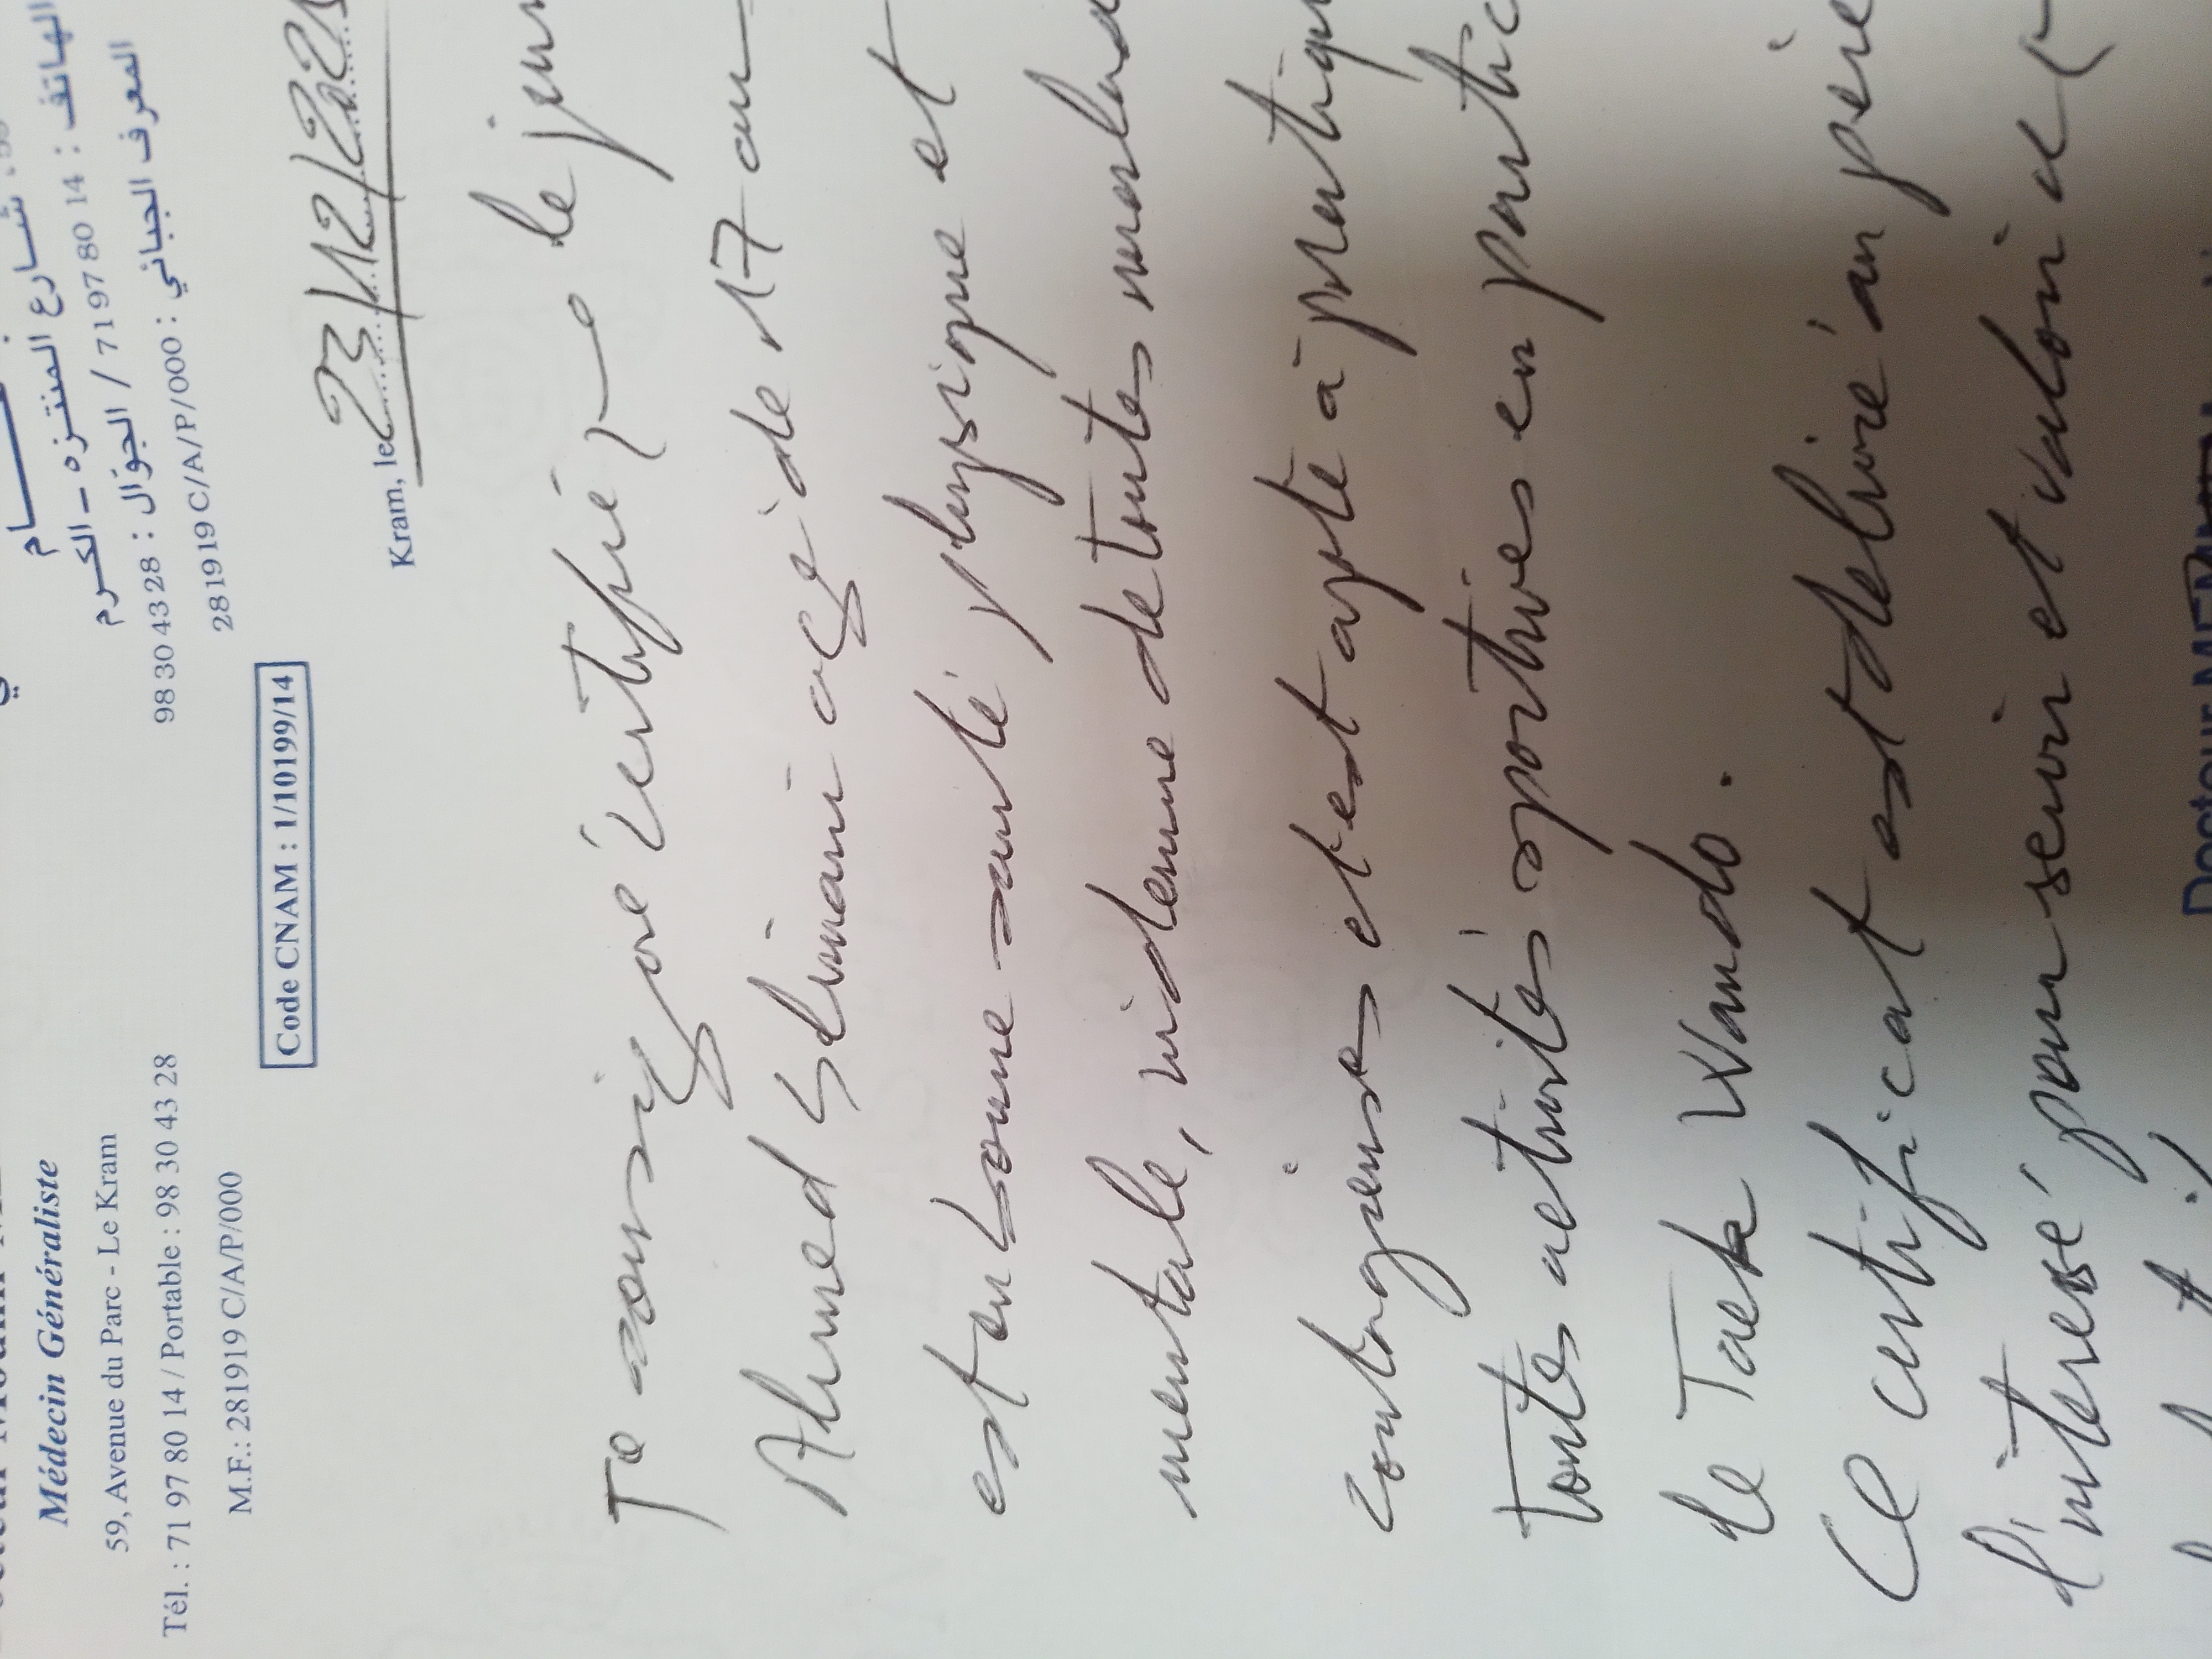 Médecin Généraliste
59, Avenue du Parc - Le Kram
Tél. : 71 97 80 14 / Portable : 98 30 43 28
M.F.: 281919 C/A/P/000
شارع المنتزه - الكرم
الهاتف : 14 80 97 71 / الجوّال : 28 43 30 98
المعرف الجبائي : 281919 C/A/P/000
Code CNAM : 1/10199/14
Kram, le 23/12/202
Je soussigné certifié que le jeun
Ahmed Slimani agé de 17 an
est en bonne santé physique et
mentale, indemne de toutes malad
contagieuses et est apte à pratiqu
toutes activités sportives en partic
le Taek Wando.
Ce certificat est delivré an
l'interessé pour servir et valoir
Docteur